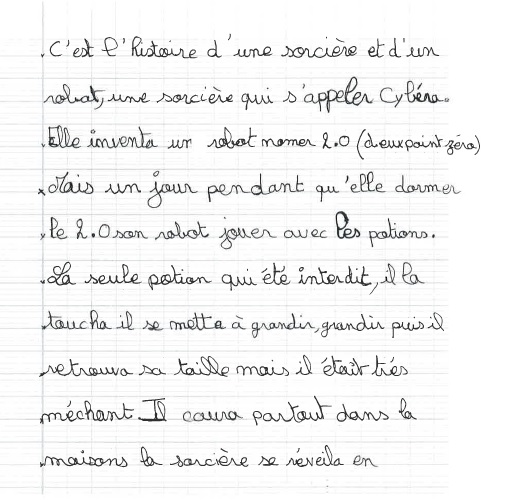 C'est l'histoire d'une sorcière et d'un
robat, une sorcière qui s'appeler Cybéra.
Elle inventa un robot nomer 2.0 (deux point zéro)
Mais un jour pendant qu'elle dormer
le 2.0 son robot jouer avec les potions.
La seule potion qui été interdit, il la
toucha il se metta à grandir, grandir puis il
retrouva sa taille mais il était trés
méchant. Il coura partout dans la
maisons la sorcière se réveila en